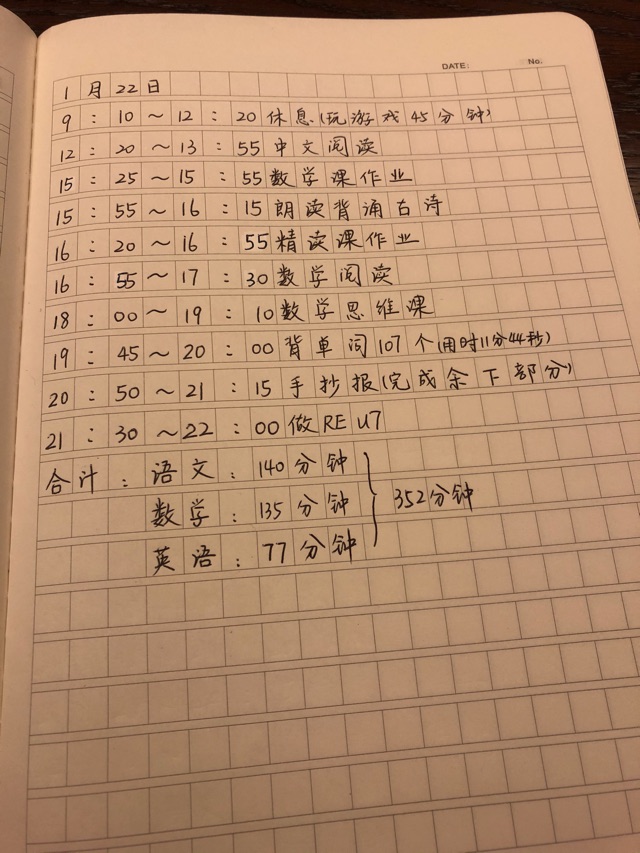 DATE: No.
1月22日
9:10~12:20休息(玩游戏45分钟)
12:20~13:55中文阅读
15:25~15:55数学课作业
15:55~16:15朗读背诵古诗
16:20~16:55精读课作业
16:55~17:30数学阅读
18:00~19:10数学思维课
19:45~20:00背单词107个(用时11分44秒)
20:50~21:15手抄报(完成余下部分)
21:30~22:00做RE U7
合计:语文:140分钟
数学:135分钟 352分钟
英语:77分钟